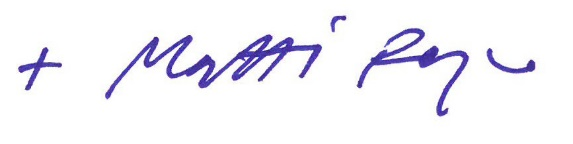 + Matti Repo